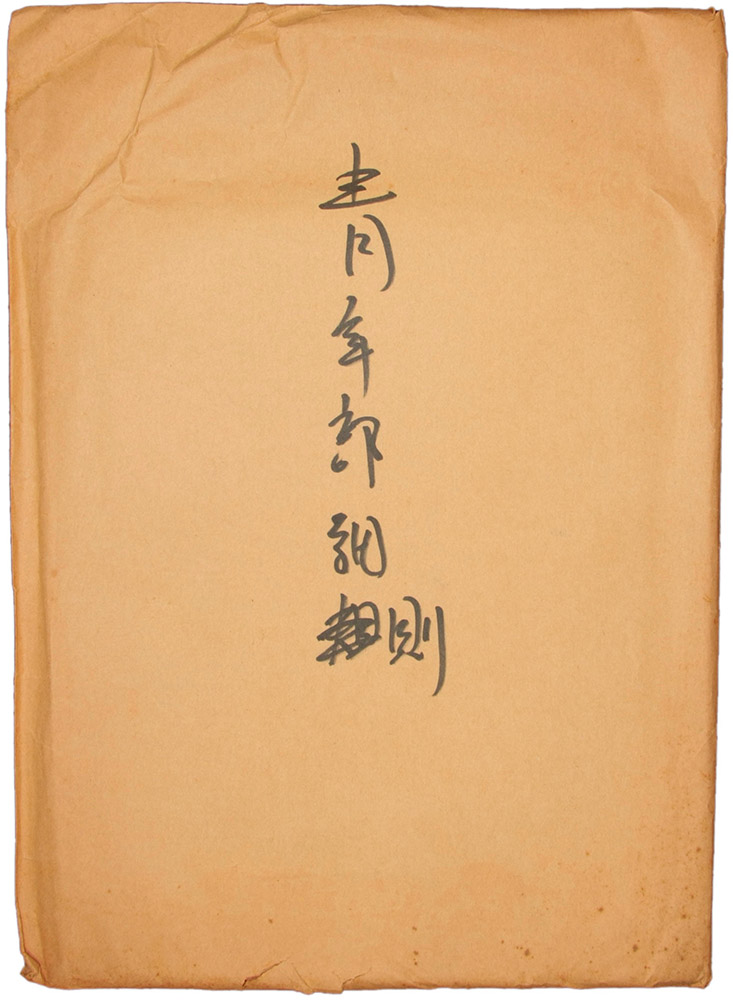 青年部細則